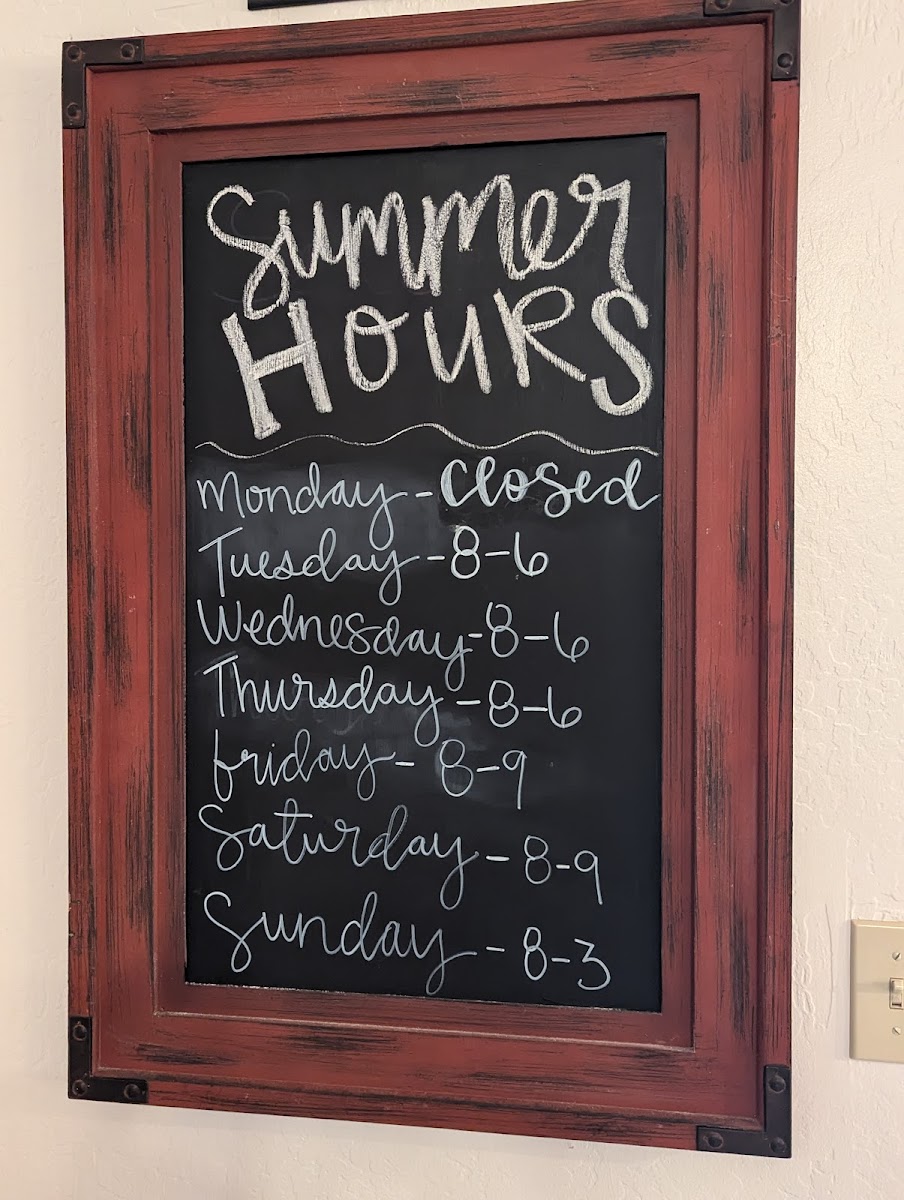 Summer
Hours
Monday - Closed
Tuesday - 8-6
Wednesday - 8-6
Thursday - 8-6
friday - 8-9
Saturday - 8-9
Sunday - 8-3